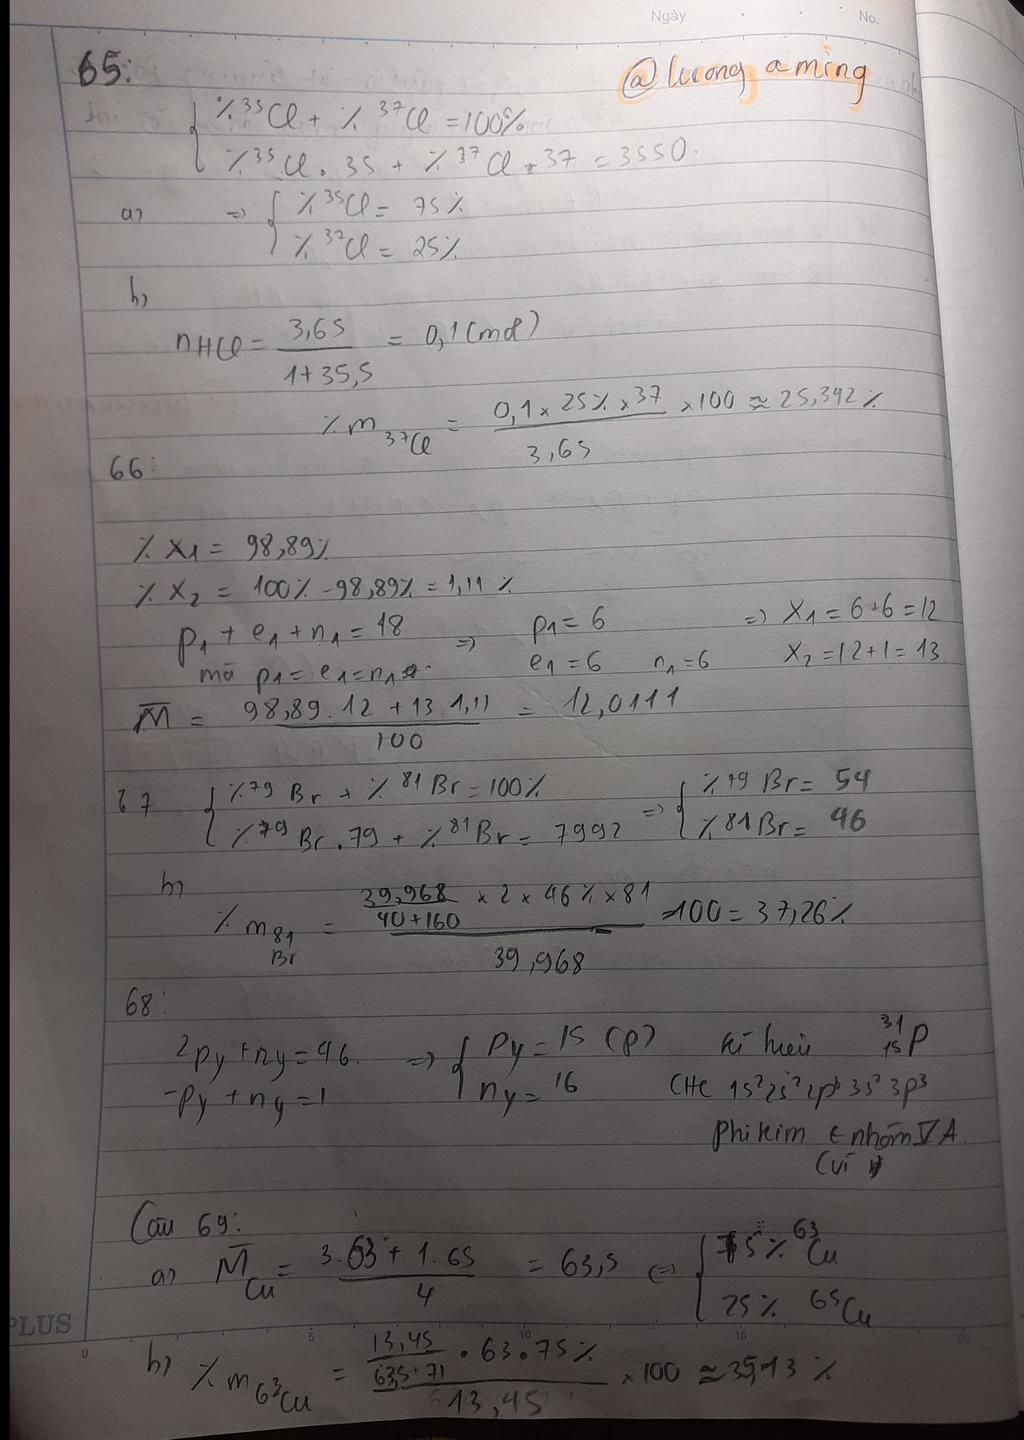 Ngày No.
65: @lương a mïng
%³⁵Cl + % ³⁷Cl = 100%
%³⁵Cl . 35 + % ³⁷Cl . 37 = 3550.
a) => { %³⁵Cl = 75%
% ³⁷Cl = 25%
b)
nHCl = 3,65 / (1+35,5) = 0,1 (mol)
% m ³⁷Cl = (0,1 x 25% x 37) / 3,65 x 100 ≈ 25,342 %
66:
% X₁ = 98,89%
% X₂ = 100% - 98,89% = 1,11 %
p₁ + e₁ + n₁ = 18 => p₁ = 6 => X₁ = 6+6 = 12
mà p₁ = e₁ = n₁ e₁ = 6 n₁ = 6 X₂ = 12+1 = 13
M̅ = (98,89 . 12 + 13 . 1,11) / 100 = 12,0111
67 { %⁷⁹Br + % ⁸¹Br = 100% => { % ⁷⁹Br = 54
%⁷⁹Br . 79 + % ⁸¹Br = 7992 % ⁸¹Br = 46
b)
% m ⁸¹Br = (39,968 / (40+160) x 2 x 46% x 81) / 39,968 . 100 = 37,26%
68:
2py + ny = 46 => { Py = 15 (P) kí hiệu ³¹₁₅P
-Py + ny = 1 ny = 16 CHe 1s²2s²2p⁶3s²3p³
phi kim ∈ nhóm VA.
(vì
Câu 69:
a) M̅ Cu = (3.63 + 1.65) / 4 = 63,5 <=> { 75% ⁶³Cu
25% ⁶⁵Cu
PLUS
0 5 10 15 20
b) % m ⁶³Cu = (13,45 / (63,5+71) . 63 . 75%) / 13,45 x 100 ≈ 35,13 %